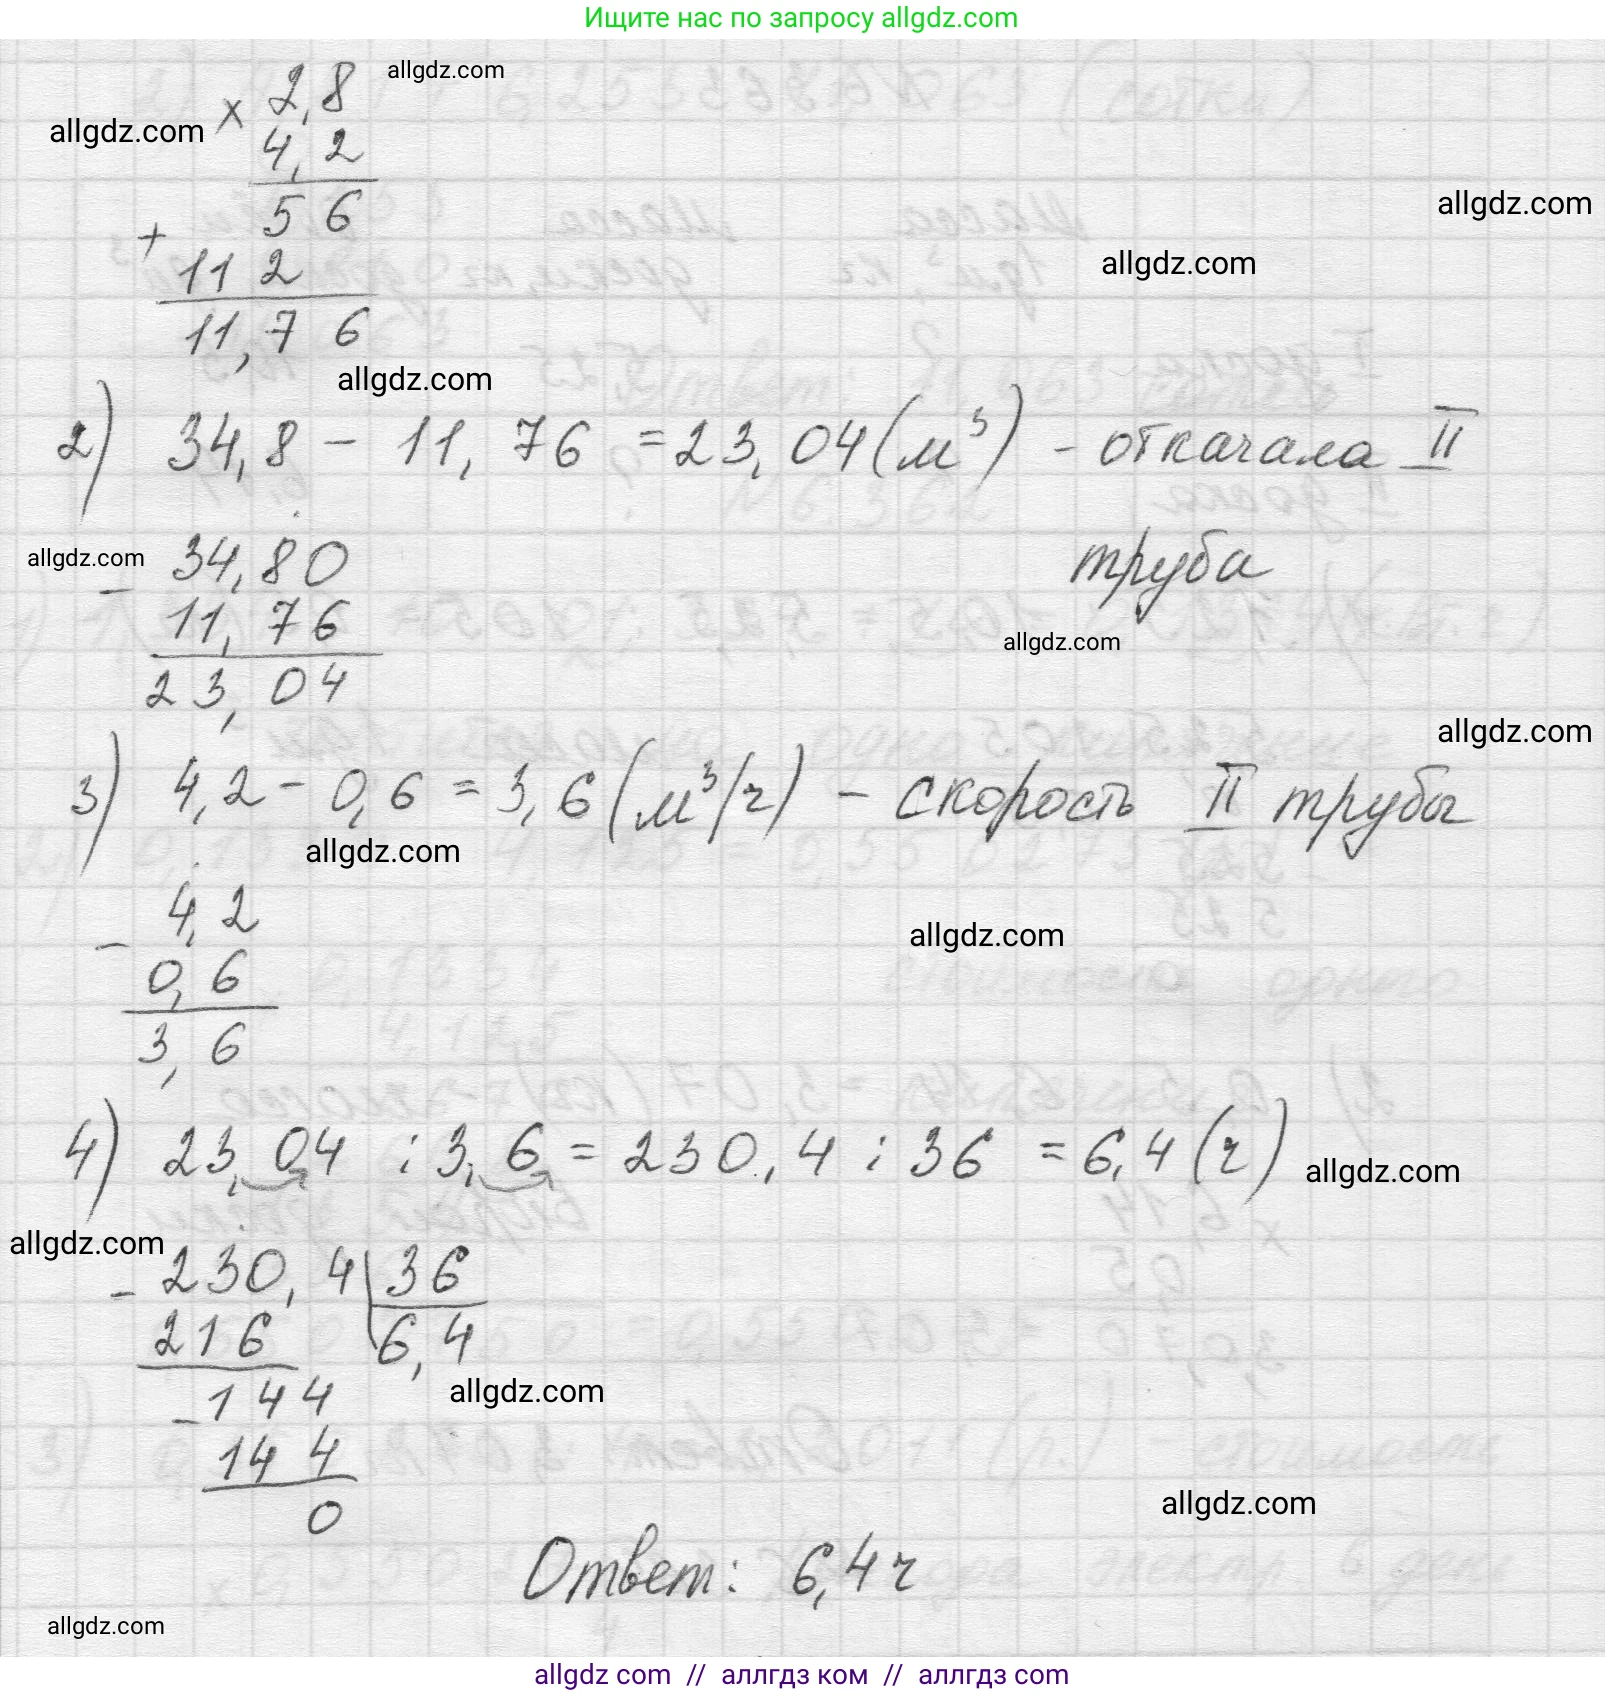 Ищите нас по запросу allgdz.com
× 2,8 allgdz.com
allgdz.com
4,2
5 6 allgdz.com
+
11 2 allgdz.com
11,7 6
allgdz.com
2) 34,8 - 11,76 = 23,04 (м³) - откачала II
труба
allgdz.com
- 34,80
11,76 allgdz.com
23,04
allgdz.com
3) 4,2 - 0,6 = 3,6 (м³/ч) - скорость II трубы
allgdz.com
- 4,2 allgdz.com
0,6
3,6
4) 23,04 : 3,6 = 230,4 : 36 = 6,4 (ч) allgdz.com
allgdz.com
- 230,4 | 36
216 6,4
- 144 allgdz.com
144
0 allgdz.com
Ответ: 6,4 ч
allgdz.com
allgdz com // аллгдз ком // аллгдз com